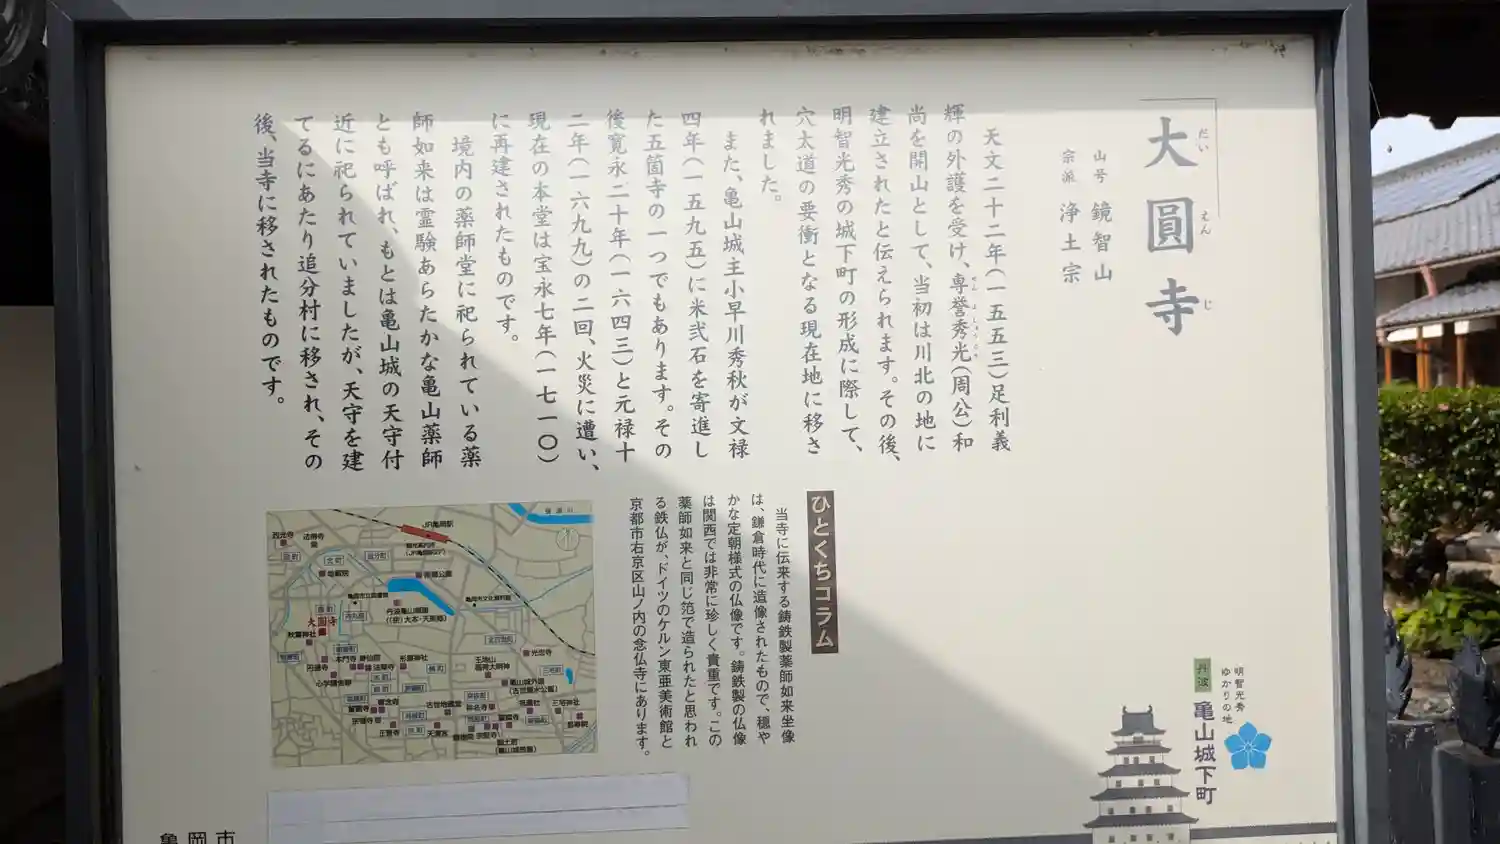 大圓寺
だいえんじ
山号 鏡智山
宗派 浄土宗
天文二十二年(一五五三)足利義
輝の外護を受け、専誉秀光(周公)和
尚を開山として、当初は川北の地に
建立されたと伝えられます。その後、
明智光秀の城下町の形成に際して、
穴太道の要衝となる現在地に移さ
れました。
また、亀山城主小早川秀秋が文禄
四年(一五九五)に米弐石を寄進し
た五箇寺の一つでもあります。その
後寛永二十年(一六四三)と元禄十
二年(一六九九)の二回、火災に遭い、
現在の本堂は宝永七年(一七一〇)
に再建されたものです。
境内の薬師堂に祀られている薬
師如来は霊験あらたかな亀山薬師
とも呼ばれ、もとは亀山城の天守付
近に祀られていましたが、天守を建
てるにあたり追分村に移され、その
後、当寺に移されたものです。
ひとくちコラム
当寺に伝来する鋳鉄製薬師如来坐像
は、鎌倉時代に造像されたもので、穏や
かな定朝様式の仏像です。鋳鉄製の仏像
は関西では非常に珍しく貴重です。この
薬師如来と同じ笵で造られたと思われ
る鉄仏が、ドイツのケルン東亜美術館と
京都市右京区山ノ内の念仏寺にあります。
JR亀岡駅
西光寺
法得寺
大圓寺
秋葉神社
光忠寺
形原神社
三宅神社
正誓寺
天満宮
明智光秀
ゆかりの地
丹波
亀山城下町
亀岡市